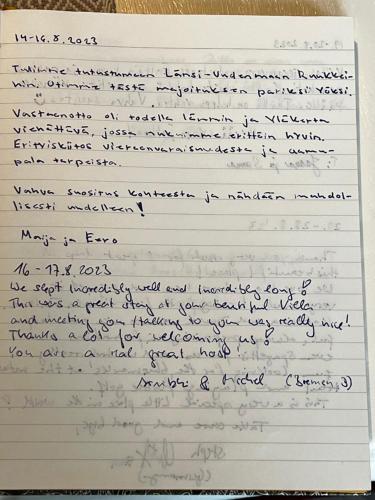 14-16.8.2023
Tulimme tutustumaan Länsi-Uudenmaan Ruukkei-
hin. Otimme tästä majoituksen pariksi yöksi.
Vastaanotto oli todella lämmin ja Yläkerta
viehättävä, jossa nukuimme erittäin hyvin.
Erityiskiitos vieraanvaraisuudesta ja aamu-
pala tarpeista.
Vahva suositus kohteesta ja nähdään mahdol-
lisesti uudelleen!
Maija ja Eero
16-17.8.2023
We slept incredibly well and incredibly long!
This was a great stay at your beautiful Villa
and meeting you /talking to you was really nice!
Thanks a lot for welcoming us!
You are a real great host
& Michel (Bremen